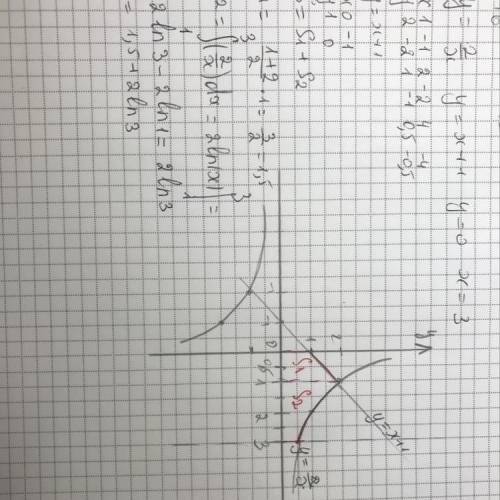 y = 2/x   y = x+1   y = 0   x = 3
x 1 -1 2 -2 4 -4
y 2 -2 1 -1 0,5 -0,5
y = x+1
x 0 -1
y 1 0
= S1 + S2
1 = (1+2)/2 · 1 = 3/2 = 1,5
2 = ∫₁³ (2/x) dx = 2 ln|x| |₁³ =
2 ln 3 - 2 ln 1 = 2 ln 3
= 1,5 + 2 ln 3
y
2
1
0
-1
1
2
3
S1
S2
y = x+1
y = 2/x